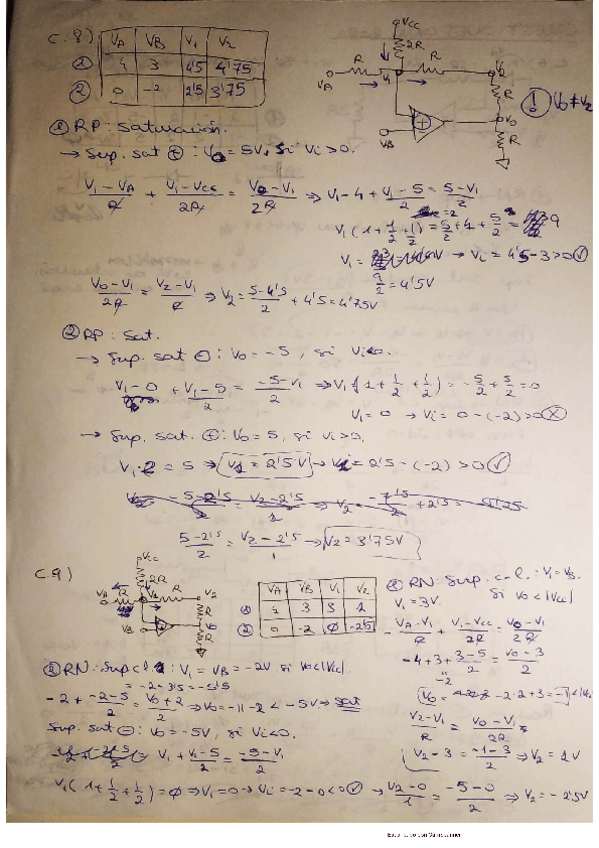 C.8)
VA VB V1 V2
① 4 3 4'5 4'75
② 0 -2 2'5 3'75
VCC
2R
R R V2
VA V1 R
VB + V0
R
! V0≠V2
① RP: saturación.
→ Sup. sat ⊕: V0 = 5V, si Vi > 0.
V1-VA/R + V1-VCC/2R = V0-V1/2R ⇒ V1-4 + V1-5/2 = 5-V1/2
V1(1+1/2+1/2) = 5/2+4+5/2 = 9
V1 = 9/2 = 4'5V → Vi = 4'5-3 > 0 ✓
V0-V1/2R = V2-V1/R ⇒ V2 = 5-4'5/2 + 4'5 = 4'75V
② RP: Sat.
→ Sup. sat ⊖: V0 = -5, si Vi<0.
V1-0 + V1-5/2 = -5-V1/2 ⇒ V1(1+1/2+1/2) = -5/2+5/2 = 0
V1 = 0 → Vi = 0-(-2) > 0 ✗
→ Sup. sat. ⊕: V0 = 5, si Vi > 0.
V1·2 = 5 ⇒ V1 = 2'5V → Vi = 2'5-(-2) > 0 ✓
5-2'5/2 = V2-2'5/1 → V2 = 3'75V
C.9)
VCC
2R
VA R V1 R V2
R
VB V0
R
VA VB V1 V2
① 4 3 3 1
② 0 -2 0 -2'5
① RN: Sup. c.c.: V1 = VB.
si V0<|VCC|
V1 = 3V
-VA-V1/R + V1-VCC/2R = V0-V1/2R
-4+3+3-5/2 = V0-3/2
V0 = -2·2+3 = -1 <|VCC|
V2-V1/R = V0-V1/2R
V2-3 = -1-3/2 ⇒ V2 = 1V
② RN: Sup c.c.: V1 = VB = -2V si V0<|VCC|.
= -2-3'5 = -5'5
-2 + -2-5/2 = V0+2/2 ⇒ V0 = -11-2 < -5V ⇒ sat
Sup. sat ⊖: V0 = -5V, si Vi<0.
V1 + V1-5/2 = -5-V1/2
V1(1+1/2+1/2) = 0 ⇒ V1 = 0 → Vi = -2-0 < 0 ✓ → V2-0/1 = -5-0/2 ⇒ V2 = -2'5V